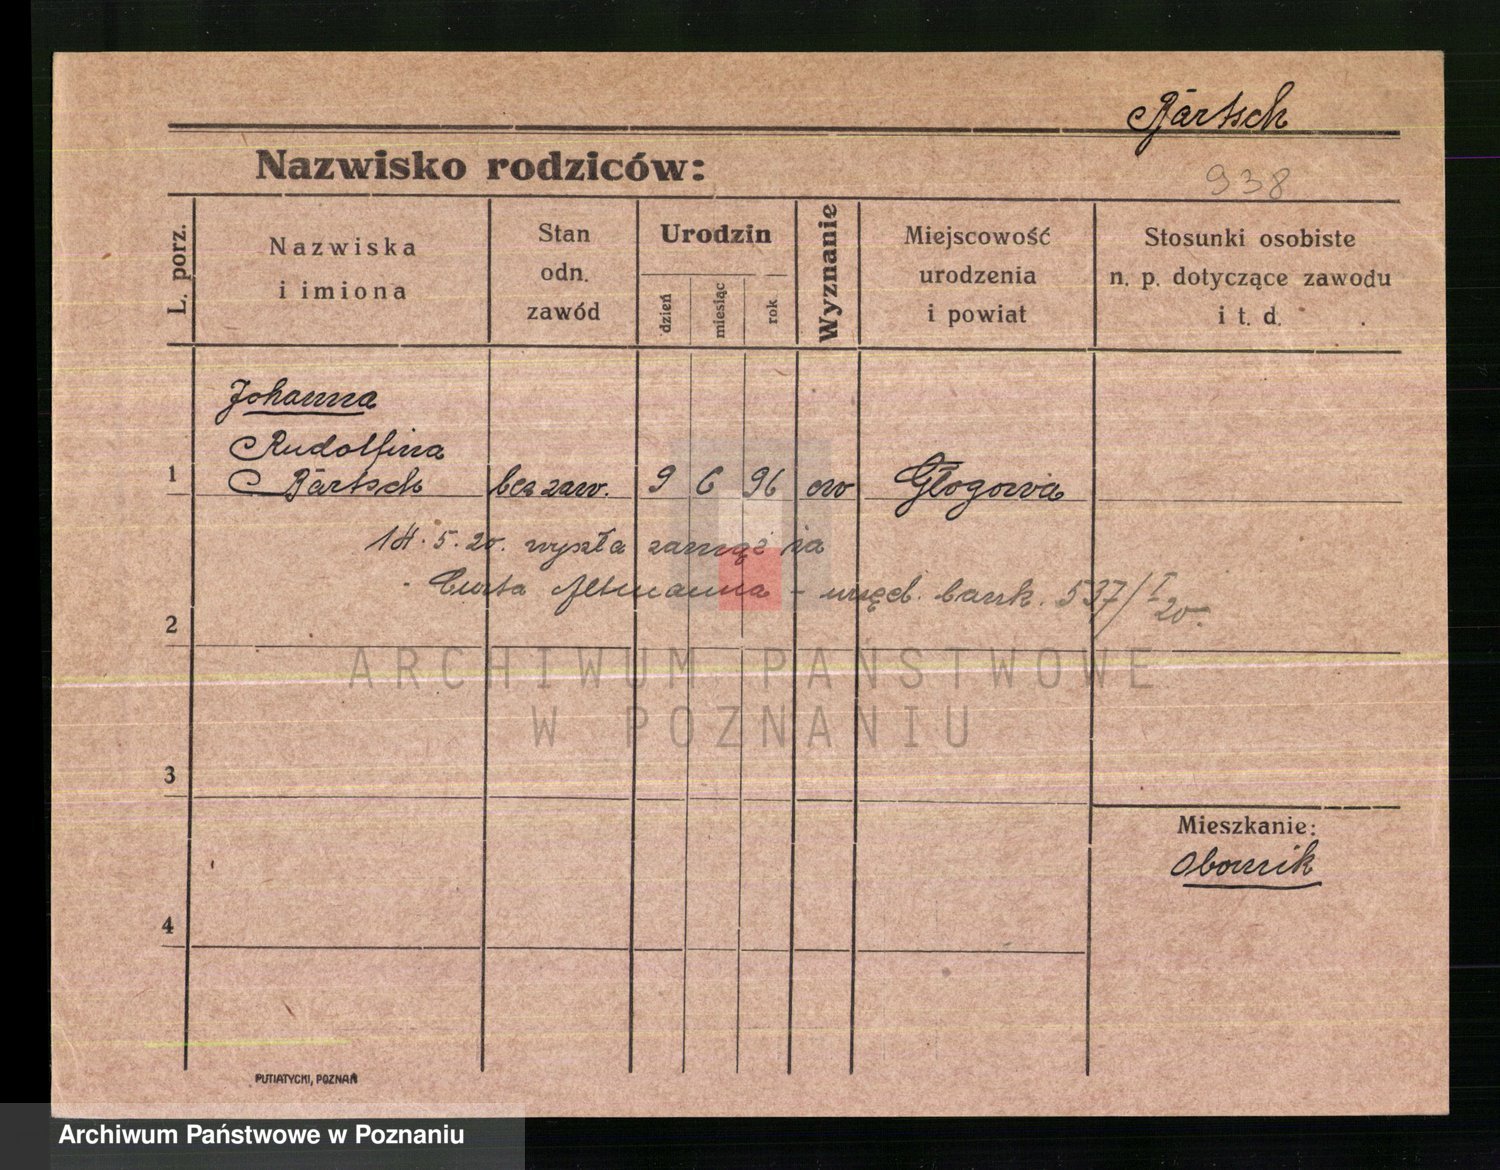 Bärtsch
Nazwisko rodziców:
938
L. porz.
Nazwiska
i imiona
Stan
odn.
zawód
Urodzin
dzień
miesiąc
rok
Wyznanie
Miejscowość
urodzenia
i powiat
Stosunki osobiste
n. p. dotyczące zawodu
i t. d.
Johanna
Rudolfina
1 Bärtsch bez zaw. 9 6 96 ew Głogowa
14.5.20. wyszła zamąż za
Curta Altmanna - urzęd. bank. 537/I 20.
2
ARCHIWUM PAŃSTWOWE
W POZNANIU
3
Mieszkanie:
Obornik
4
PUTIATYCKI, POZNAŃ
Archiwum Państwowe w Poznaniu